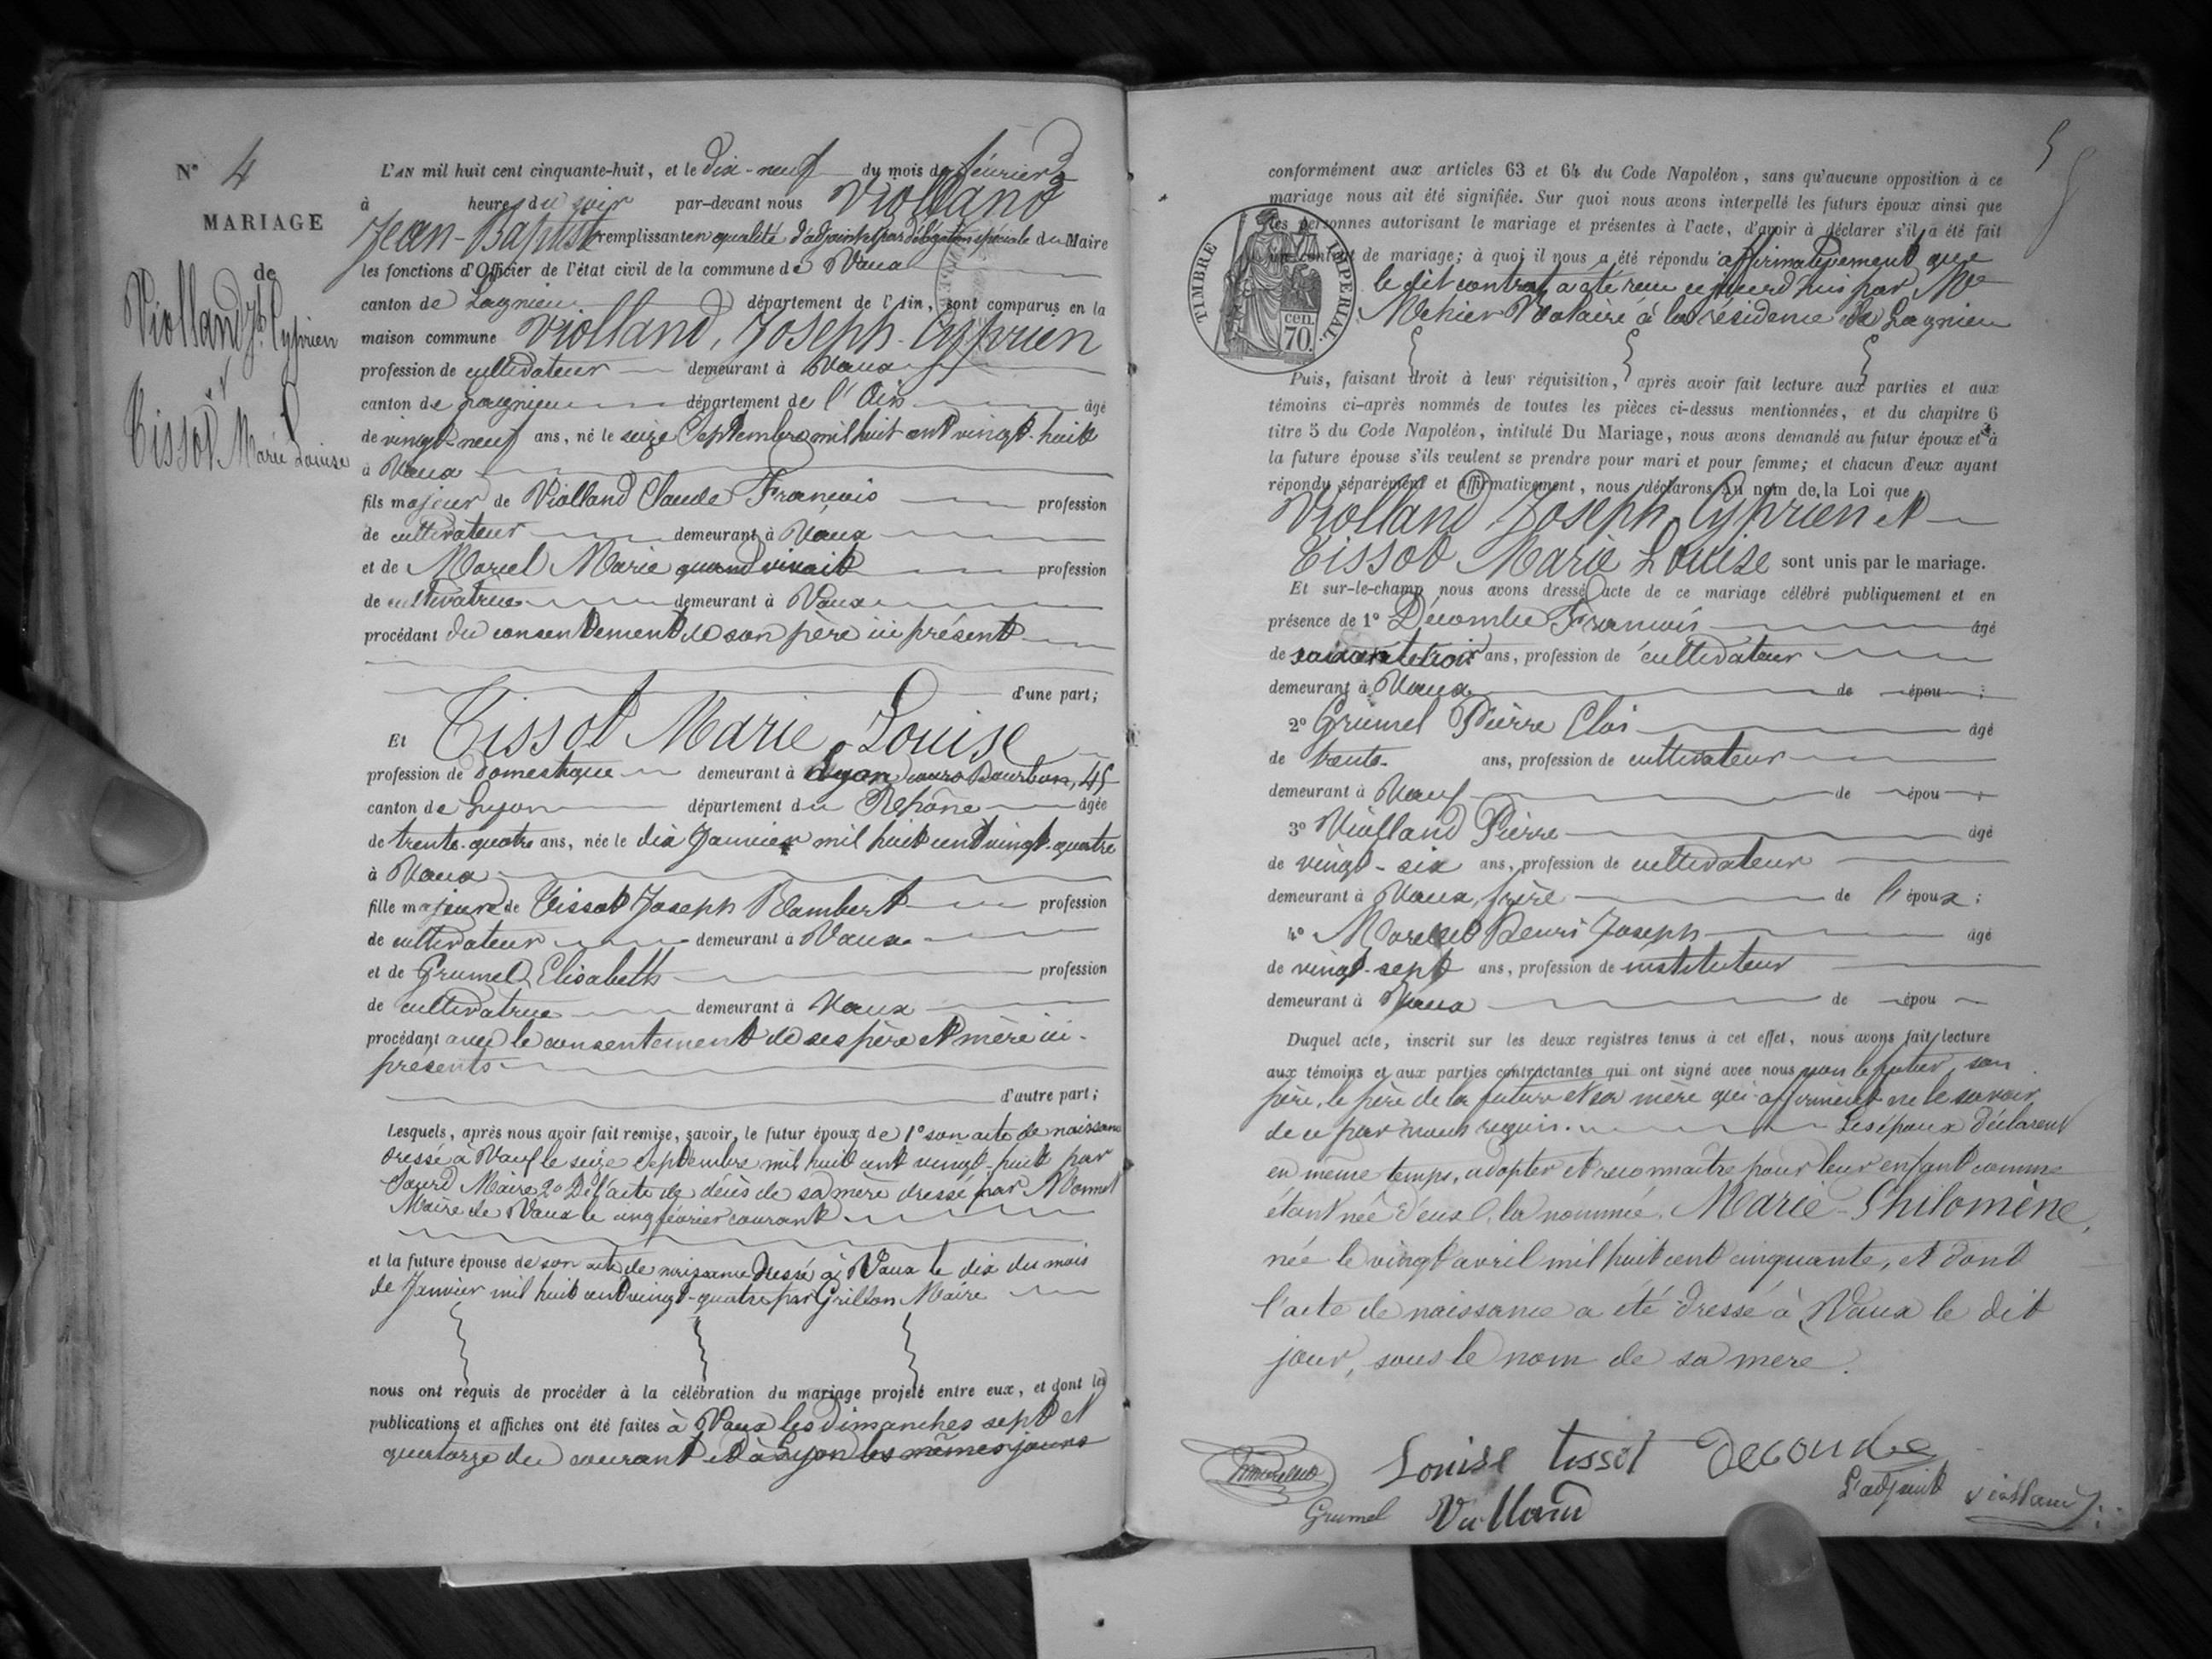 N° 4
MARIAGE
de
Violland Jh Cyprien
et
Tissot Marie Louise
L'AN mil huit cent cinquante-huit, et le dix-neuf du mois de février
à heure du soir par-devant nous Violland
Jean-Baptiste remplissant en qualité d'adjoint et par délégation spéciale du Maire
les fonctions d'Officier de l'état civil de la commune de Vaux
canton de Lagnieu département de l'Ain, sont comparus en la
maison commune Violland, Joseph-Cyprien
profession de cultivateur demeurant à Vaux
canton de Lagnieu département de l'Ain âgé
de vingt-neuf ans, né le seize Septembre mil huit cent vingt-huit
à Vaux
fils majeur de Violland Claude François profession
de cultivateur demeurant à Vaux
et de Marcel Marie quand vivait profession
de cultivatrice demeurant à Vaux
procédant du consentement de son père ici présent
d'une part;
Et Tissot Marie Louise
profession de domestique demeurant à Lyon cours Bourbon, 45
canton de Lyon département du Rhône âgée
de trente-quatre ans, née le dix Janvier mil huit cent vingt-quatre
à Vaux
fille majeure de Tissot Joseph Rambert profession
de cultivateur demeurant à Vaux
et de Grumel Elisabeth profession
de cultivatrice demeurant à Vaux
procédant avec le consentement de ses père et mère ici-
présents
d'autre part;
Lesquels, après nous avoir fait remise, savoir, le futur époux de 1° son acte de naissance
dressé à Vaux le seize Septembre mil huit cent vingt-huit par
Maire 2° De l'acte de décès de sa mère dressé par Monnet
Maire de Vaux le cinq février courant
et la future épouse de son acte de naissance dressé à Vaux le dix du mois
de Janvier mil huit cent vingt-quatre par Grillon Maire
nous ont requis de procéder à la célébration du mariage projeté entre eux, et dont les
publications et affiches ont été faites à Vaux les dimanches sept et
quatorze du courant et à Lyon les mêmes jours
5
conformément aux articles 63 et 64 du Code Napoléon, sans qu'aucune opposition à ce
mariage nous ait été signifiée. Sur quoi nous avons interpellé les futurs époux ainsi que
les personnes autorisant le mariage et présentes à l'acte, d'avoir à déclarer s'il a été fait
un contrat de mariage; à quoi il nous a été répondu affirmativement que
le dit contrat a été reçu aujourd'hui par Me
Mehier Notaire à la résidence de Lagnieu
TIMBRE IMPERIAL
cen.
70.
Puis, faisant droit à leur réquisition, après avoir fait lecture aux parties et aux
témoins ci-après nommés de toutes les pièces ci-dessus mentionnées, et du chapitre 6
titre 5 du Code Napoléon, intitulé Du Mariage, nous avons demandé au futur époux et à
la future épouse s'ils veulent se prendre pour mari et pour femme; et chacun d'eux ayant
répondu séparément et affirmativement, nous déclarons au nom de la Loi que
Violland Joseph-Cyprien et
Tissot Marie Louise sont unis par le mariage.
Et sur-le-champ nous avons dressé acte de ce mariage célébré publiquement et en
présence de 1° François âgé
de soixante trois ans, profession de cultivateur
demeurant à Vaux de épou ;
2° Grumel Pierre Eloi âgé
de trente ans, profession de cultivateur
demeurant à Vaux de épou
3° Violland Pierre âgé
de vingt-six ans, profession de cultivateur
demeurant à Vaux, frère de l'époux;
4° Henri Joseph âgé
de vingt-sept ans, profession de instituteur
demeurant à Vaux de épou
Duquel acte, inscrit sur les deux registres tenus à cet effet, nous avons fait lecture
aux témoins et aux parties contractantes qui ont signé avec nous non le futur, son
père, le père de la future et sa mère qui affirment ne le savoir
de ce par nous requis. Les époux déclarent
en même temps, adopter et reconnaître pour leur enfant comme
étant né d'eux, la nommée, Marie-Philomène,
née le vingt avril mil huit cent cinquante, et dont
l'acte de naissance a été dressé à Vaux le dit
jour, sous le nom de sa mère.
Louise tissot
L'adjoint violland
Grumel Violland